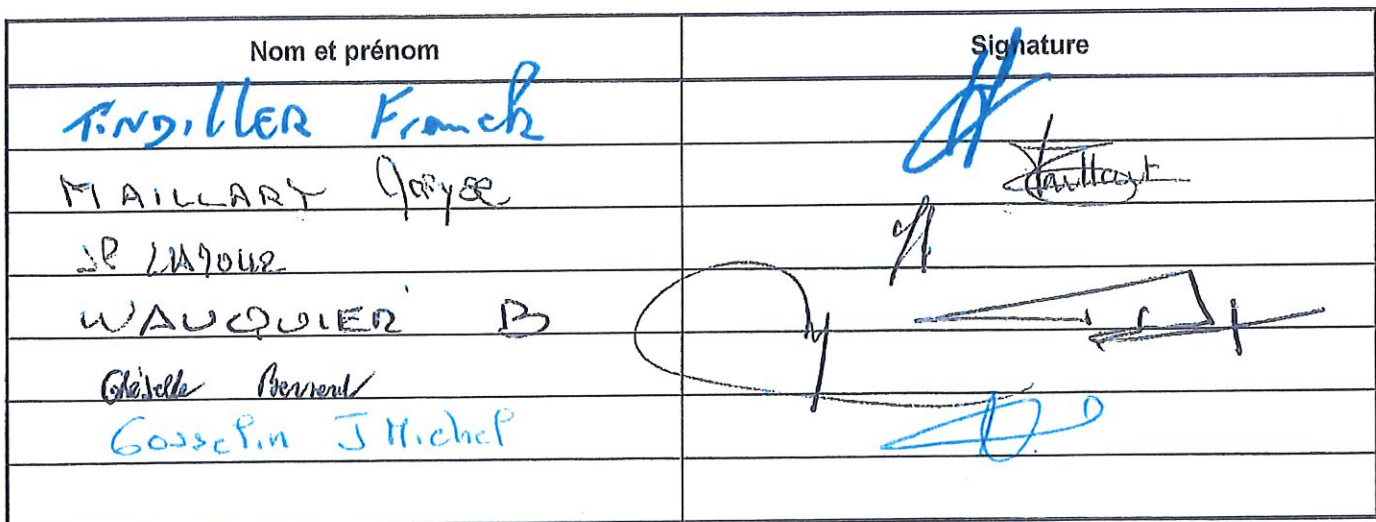 Nom et prénom Signature
TINDILLER Franck
MAILLARY
JP LATOUR
WAUQUIER B
Bernard
Gosselin J Michel